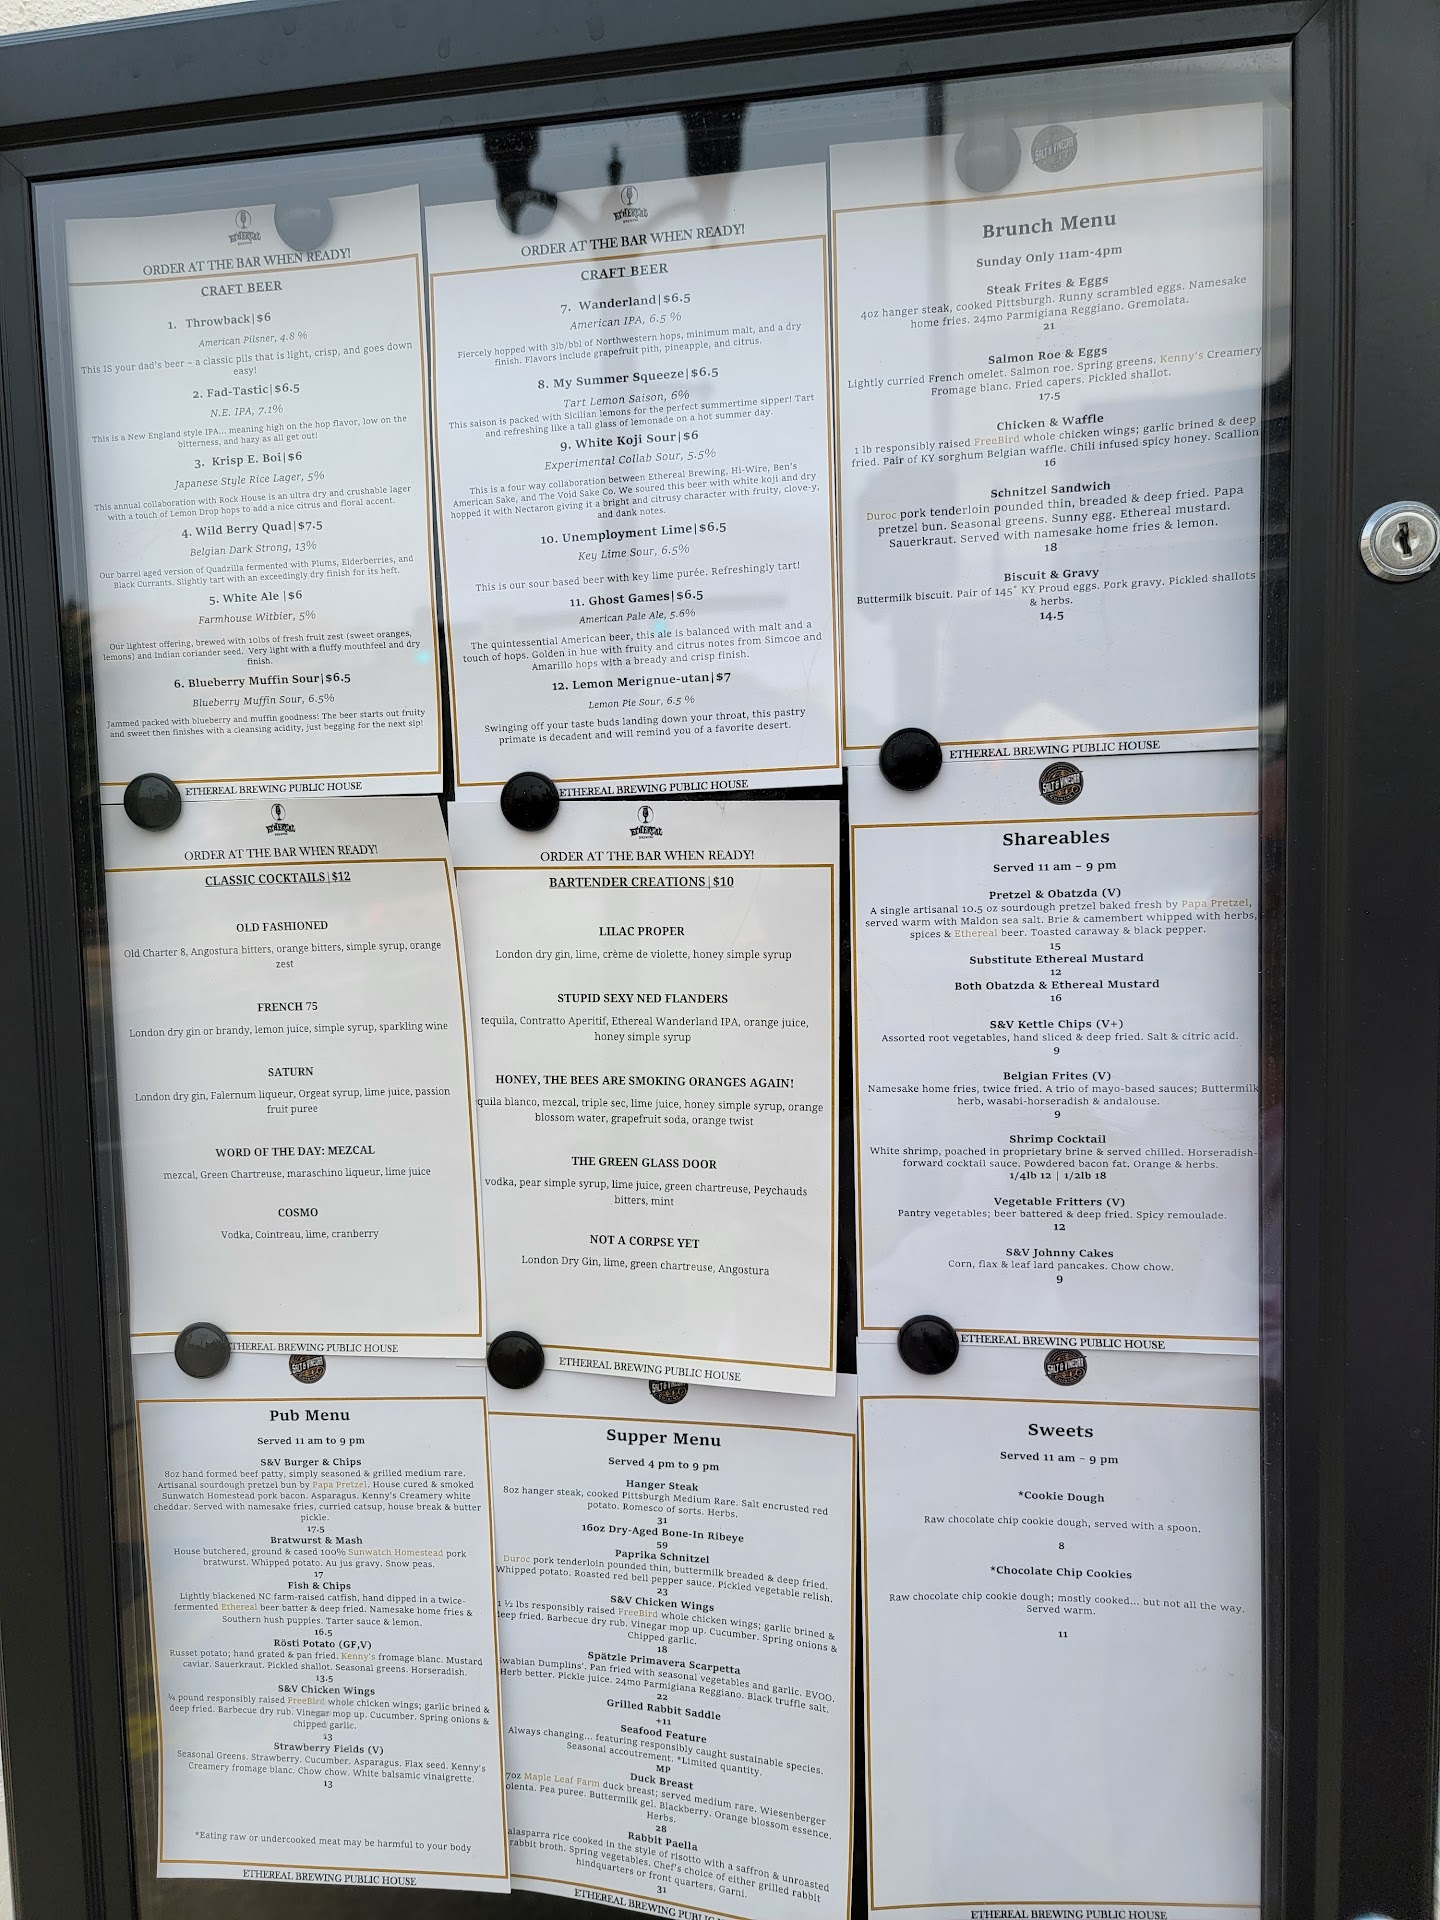 ETHEREAL
BREWING
ORDER AT THE BAR WHEN READY!
CRAFT BEER
1. Throwback|$6
American Pilsner, 4.8 %
This IS your dad's beer – a classic pils that is light, crisp, and goes down
easy!
2. Fad-Tastic|$6.5
N.E. IPA, 7.1%
This is a New England style IPA... meaning high on the hop flavor, low on the
bitterness, and hazy as all get out!
3. Krisp E. Boi|$6
Japanese Style Rice Lager, 5%
This annual collaboration with Rock House is an ultra dry and crushable lager
with a touch of Lemon Drop hops to add a nice citrus and floral accent.
4. Wild Berry Quad|$7.5
Belgian Dark Strong, 13%
Our barrel aged version of Quadzilla fermented with Plums, Elderberries, and
Black Currants. Slightly tart with an exceedingly dry finish for its heft.
5. White Ale |$6
Farmhouse Witbier, 5%
Our lightest offering, brewed with 10lbs of fresh fruit zest (sweet oranges,
lemons) and Indian coriander seed. Very light with a fluffy mouthfeel and dry
finish.
6. Blueberry Muffin Sour|$6.5
Blueberry Muffin Sour, 6.5%
Jammed packed with blueberry and muffin goodness! The beer starts out fruity
and sweet then finishes with a cleansing acidity, just begging for the next sip!
ETHEREAL BREWING PUBLIC HOUSE
ETHEREAL
BREWING
ORDER AT THE BAR WHEN READY!
CRAFT BEER
7. Wanderland|$6.5
American IPA, 6.5 %
Fiercely hopped with 3lb/bbl of Northwestern hops, minimum malt, and a dry
finish. Flavors include grapefruit pith, pineapple, and citrus.
8. My Summer Squeeze|$6.5
Tart Lemon Saison, 6%
This saison is packed with Sicilian lemons for the perfect summertime sipper! Tart
and refreshing like a tall glass of lemonade on a hot summer day.
9. White Koji Sour|$6
Experimental Collab Sour, 5.5%
This is a four way collaboration between Ethereal Brewing, Hi-Wire, Ben's
American Sake, and The Void Sake Co. We soured this beer with white koji and dry
hopped it with Nectaron giving it a bright and citrusy character with fruity, clove-y,
and dank notes.
10. Unemployment Lime|$6.5
Key Lime Sour, 6.5%
This is our sour based beer with key lime purée. Refreshingly tart!
11. Ghost Games|$6.5
American Pale Ale, 5.6%
The quintessential American beer, this ale is balanced with malt and a
touch of hops. Golden in hue with fruity and citrus notes from Simcoe and
Amarillo hops with a bready and crisp finish.
12. Lemon Merignue-utan|$7
Lemon Pie Sour, 6.5 %
Swinging off your taste buds landing down your throat, this pastry
primate is decadent and will remind you of a favorite desert.
ETHEREAL BREWING PUBLIC HOUSE
SALT & VINEGAR
Brunch Menu
Sunday Only 11am-4pm
Steak Frites & Eggs
4oz hanger steak, cooked Pittsburgh. Runny scrambled eggs. Namesake
home fries. 24mo Parmigiana Reggiano. Gremolata.
21
Salmon Roe & Eggs
Lightly curried French omelet. Salmon roe. Spring greens. Kenny's Creamery
Fromage blanc. Fried capers. Pickled shallot.
17.5
Chicken & Waffle
1 lb responsibly raised FreeBird whole chicken wings; garlic brined & deep
fried. Pair of KY sorghum Belgian waffle. Chili infused spicy honey. Scallion
16
Schnitzel Sandwich
Duroc pork tenderloin pounded thin, breaded & deep fried. Papa
pretzel bun. Seasonal greens. Sunny egg. Ethereal mustard.
Sauerkraut. Served with namesake home fries & lemon.
18
Biscuit & Gravy
Buttermilk biscuit. Pair of 145° KY Proud eggs. Pork gravy. Pickled shallots
& herbs.
14.5
ETHEREAL BREWING PUBLIC HOUSE
ETHEREAL
BREWING
ORDER AT THE BAR WHEN READY!
CLASSIC COCKTAILS|$12
OLD FASHIONED
Old Charter 8, Angostura bitters, orange bitters, simple syrup, orange
zest
FRENCH 75
London dry gin or brandy, lemon juice, simple syrup, sparkling wine
SATURN
London dry gin, Falernum liqueur, Orgeat syrup, lime juice, passion
fruit puree
WORD OF THE DAY: MEZCAL
mezcal, Green Chartreuse, maraschino liqueur, lime juice
COSMO
Vodka, Cointreau, lime, cranberry
THEREAL BREWING PUBLIC HOUSE
ETHEREAL
BREWING
ORDER AT THE BAR WHEN READY!
BARTENDER CREATIONS|$10
LILAC PROPER
London dry gin, lime, crème de violette, honey simple syrup
STUPID SEXY NED FLANDERS
tequila, Contratto Aperitif, Ethereal Wanderland IPA, orange juice,
honey simple syrup
HONEY, THE BEES ARE SMOKING ORANGES AGAIN!
quila blanco, mezcal, triple sec, lime juice, honey simple syrup, orange
blossom water, grapefruit soda, orange twist
THE GREEN GLASS DOOR
vodka, pear simple syrup, lime juice, green chartreuse, Peychauds
bitters, mint
NOT A CORPSE YET
London Dry Gin, lime, green chartreuse, Angostura
ETHEREAL BREWING PUBLIC HOUSE
SALT & VINEGAR
Shareables
Served 11 am – 9 pm
Pretzel & Obatzda (V)
A single artisanal 10.5 oz sourdough pretzel baked fresh by Papa Pretzel,
served warm with Maldon sea salt. Brie & camembert whipped with herbs,
spices & Ethereal beer. Toasted caraway & black pepper.
15
Substitute Ethereal Mustard
12
Both Obatzda & Ethereal Mustard
16
S&V Kettle Chips (V+)
Assorted root vegetables, hand sliced & deep fried. Salt & citric acid.
9
Belgian Frites (V)
Namesake home fries, twice fried. A trio of mayo-based sauces; Buttermilk
herb, wasabi-horseradish & andalouse.
9
Shrimp Cocktail
White shrimp, poached in proprietary brine & served chilled. Horseradish-
forward cocktail sauce. Powdered bacon fat. Orange & herbs.
1/4lb 12 | 1/2lb 18
Vegetable Fritters (V)
Pantry vegetables; beer battered & deep fried. Spicy remoulade.
12
S&V Johnny Cakes
Corn, flax & leaf lard pancakes. Chow chow.
9
ETHEREAL BREWING PUBLIC HOUSE
SALT & VINEGAR
Pub Menu
Served 11 am to 9 pm
S&V Burger & Chips
8oz hand formed beef patty, simply seasoned & grilled medium rare.
Artisanal sourdough pretzel bun by Papa Pretzel. House cured & smoked
Sunwatch Homestead pork bacon. Asparagus. Kenny's Creamery white
cheddar. Served with namesake fries, curried catsup, house break & butter
pickle.
17.5
Bratwurst & Mash
House butchered, ground & cased 100% Sunwatch Homestead pork
bratwurst. Whipped potato. Au jus gravy. Snow peas.
17
Fish & Chips
Lightly blackened NC farm-raised catfish, hand dipped in a twice-
fermented Ethereal beer batter & deep fried. Namesake home fries &
Southern hush puppies. Tarter sauce & lemon.
16.5
Rösti Potato (GF,V)
Russet potato; hand grated & pan fried. Kenny's fromage blanc. Mustard
caviar. Sauerkraut. Pickled shallot. Seasonal greens. Horseradish.
13.5
S&V Chicken Wings
¾ pound responsibly raised FreeBird whole chicken wings; garlic brined &
deep fried. Barbecue dry rub. Vinegar mop up. Cucumber. Spring onions &
chipped garlic.
13
Strawberry Fields (V)
Seasonal Greens. Strawberry. Cucumber. Asparagus. Flax seed. Kenny's
Creamery fromage blanc. Chow chow. White balsamic vinaigrette.
13
*Eating raw or undercooked meat may be harmful to your body
ETHEREAL BREWING PUBLIC HOUSE
SALT & VINEGAR
Supper Menu
Served 4 pm to 9 pm
Hanger Steak
8oz hanger steak, cooked Pittsburgh Medium Rare. Salt encrusted red
potato. Romesco of sorts. Herbs.
31
16oz Dry-Aged Bone-In Ribeye
59
Paprika Schnitzel
Duroc pork tenderloin pounded thin, buttermilk breaded & deep fried.
Whipped potato. Roasted red bell pepper sauce. Pickled vegetable relish.
23
S&V Chicken Wings
1 ½ lbs responsibly raised FreeBird whole chicken wings; garlic brined &
deep fried. Barbecue dry rub. Vinegar mop up. Cucumber. Spring onions &
Chipped garlic.
18
Spätzle Primavera Scarpetta
wabian Dumplins'. Pan fried with seasonal vegetables and garlic. EVOO.
Herb better. Pickle juice. 24mo Parmigiana Reggiano. Black truffle salt.
22
Grilled Rabbit Saddle
+11
Seafood Feature
Always changing... featuring responsibly caught sustainable species.
Seasonal accoutrement. *Limited quantity.
MP
Duck Breast
7oz Maple Leaf Farm duck breast; served medium rare. Wiesenberger
olenta. Pea puree. Buttermilk gel. Blackberry. Orange blossom essence.
Herbs.
28
Rabbit Paella
alasparra rice cooked in the style of risotto with a saffron & unroasted
rabbit broth. Spring vegetables. Chef's choice of either grilled rabbit
hindquarters or front quarters. Garni.
31
ETHEREAL BREWING PUBLIC
SALT & VINEGAR
Sweets
Served 11 am – 9 pm
*Cookie Dough
Raw chocolate chip cookie dough, served with a spoon.
8
*Chocolate Chip Cookies
Raw chocolate chip cookie dough; mostly cooked... but not all the way.
Served warm.
11
ETHEREAL BREWING PUBLIC HOUSE